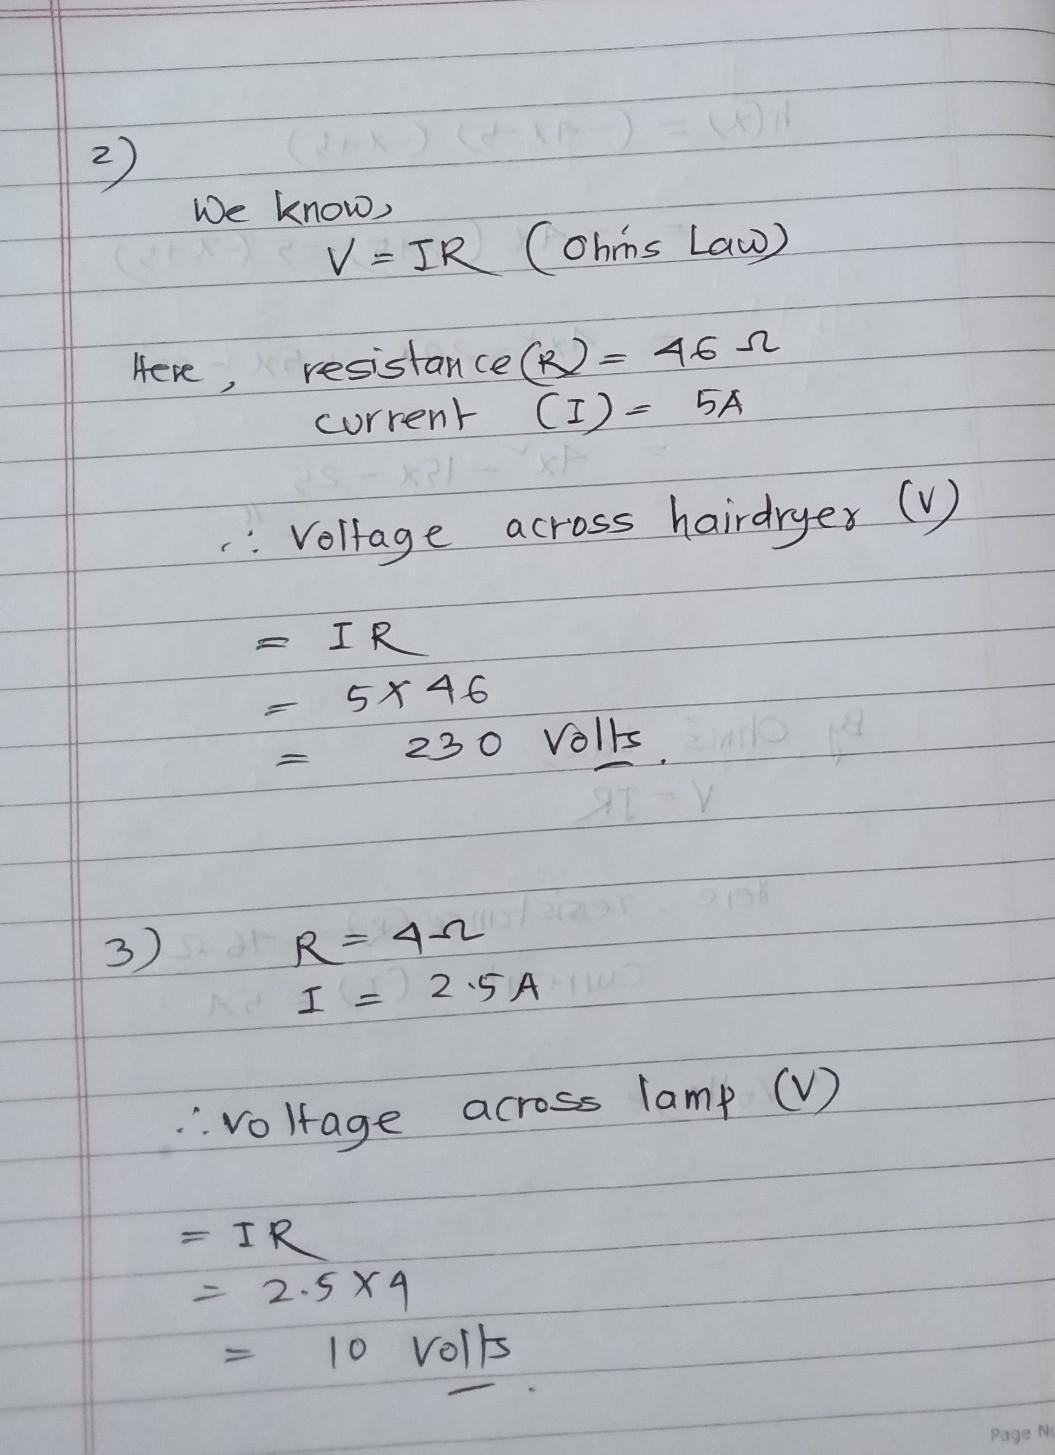 2)
We know,
V = IR (Ohm's Law)
Here, resistance (R) = 46 Ω
current (I) = 5A
∴ Voltage across hairdryer (V)
= IR
= 5 X 46
= 230 Volts.
3) R = 4Ω
I = 2.5A
∴ voltage across lamp (V)
= IR
= 2.5 X 4
= 10 Volts.
Page No